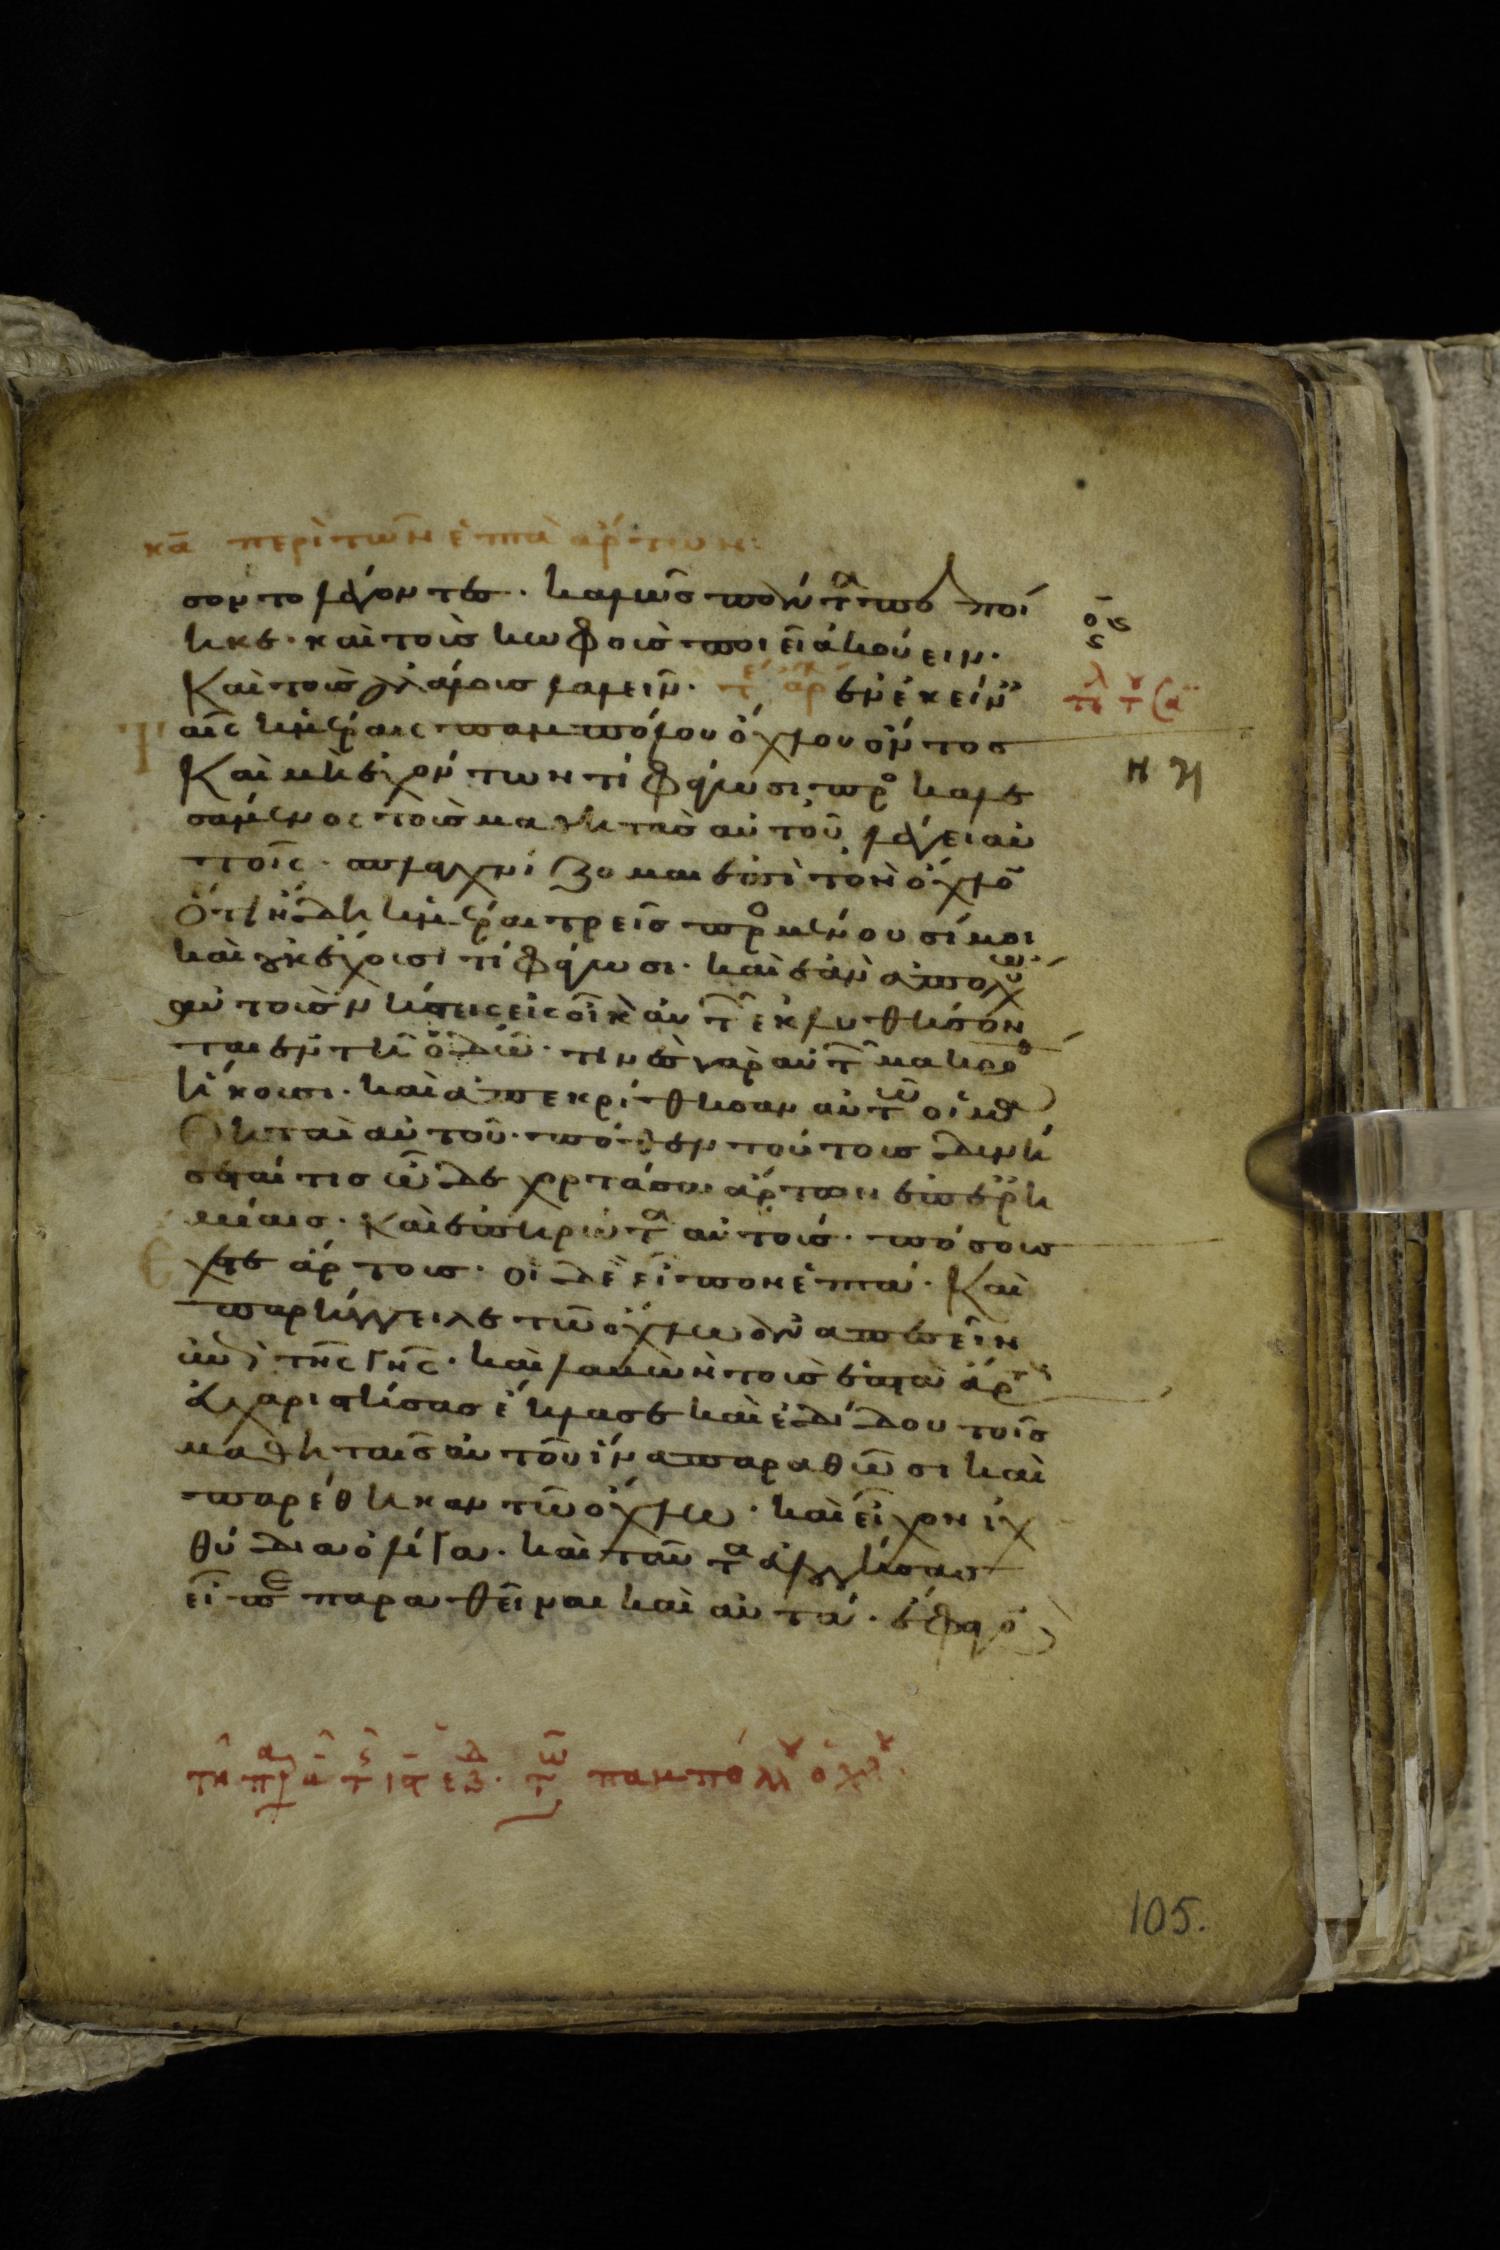 κα περὶ τῶν ἑπτὰ ἄρτων:
σοντο λέγοντες· καλῶς πάντα πεποί
ηκε· καὶ τοὺς κωφοὺς ποιεῖ ἀκούειν·
Καὶ τοὺς ἀλάλους λαλεῖν· τέ αρ ἐν ἐκείν
αις ἡμέραις παμπόλου ὄχλου ὄντος
Καὶ μὴ ἐχόντων τί φάγωσι, προσκαλε
σάμενος τοὺς μαθητὰς αὐτοῦ, λέγει αὐ
τοῖς· σπλαγχνίζομαι ἐπὶ τὸν ὄχλον
ὅτι ἤδη ἡμέραι τρεῖς προσμένουσί μοι
καὶ οὐκ ἔχουσι τί φάγωσι· καὶ ἐὰν ἀπολύσω
αὐτοὺς νήστεις εἰς οἶκον αὐτῶν ἐκλυθήσον
ται ἐν τῇ ὁδῷ· τινὲς γὰρ αὐτῶν μακρόθεν
ἥκουσι· καὶ ἀπεκρίθησαν αὐτῷ οἱ μα
θηταὶ αὐτοῦ· πόθεν τούτους δυνή
σεταί τις ὧδε χορτάσαι ἄρτων ἐπ' ἐρη
μίαις· καὶ ἐπηρώτα αὐτούς· πόσους
ἔχετε ἄρτους· οἱ δὲ εἶπον ἑπτά· Καὶ
παρήγγειλε τῷ ὄχλῳ ἀναπεσεῖν
ἐπὶ τῆς γῆς· καὶ λαβὼν τοὺς ἑπτὰ ἄρτους
εὐχαριστήσας ἔκλασε καὶ ἐδίδου τοῖς
μαθηταῖς αὐτοῦ ἵνα παραθῶσι καὶ
παρέθηκαν τῷ ὄχλῳ· καὶ εἶχον ἰχ
θύδια ὀλίγα· καὶ ταῦτα εὐλογήσας
εἶπε παραθεῖναι καὶ αὐτά· ἔφαγον
παμπόλλου ὄχλου·
105.